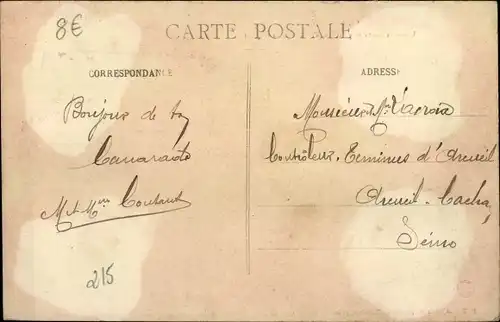 8€
CARTE POSTALE
CORRESPONDANCE
ADRESSE
Bonjour de ta
Camarade
M et Mme Coutant
215
Monsieur et Mme Lacroix
Contrôleur. d'Arcueil
Arcueil-Cachan
Seine